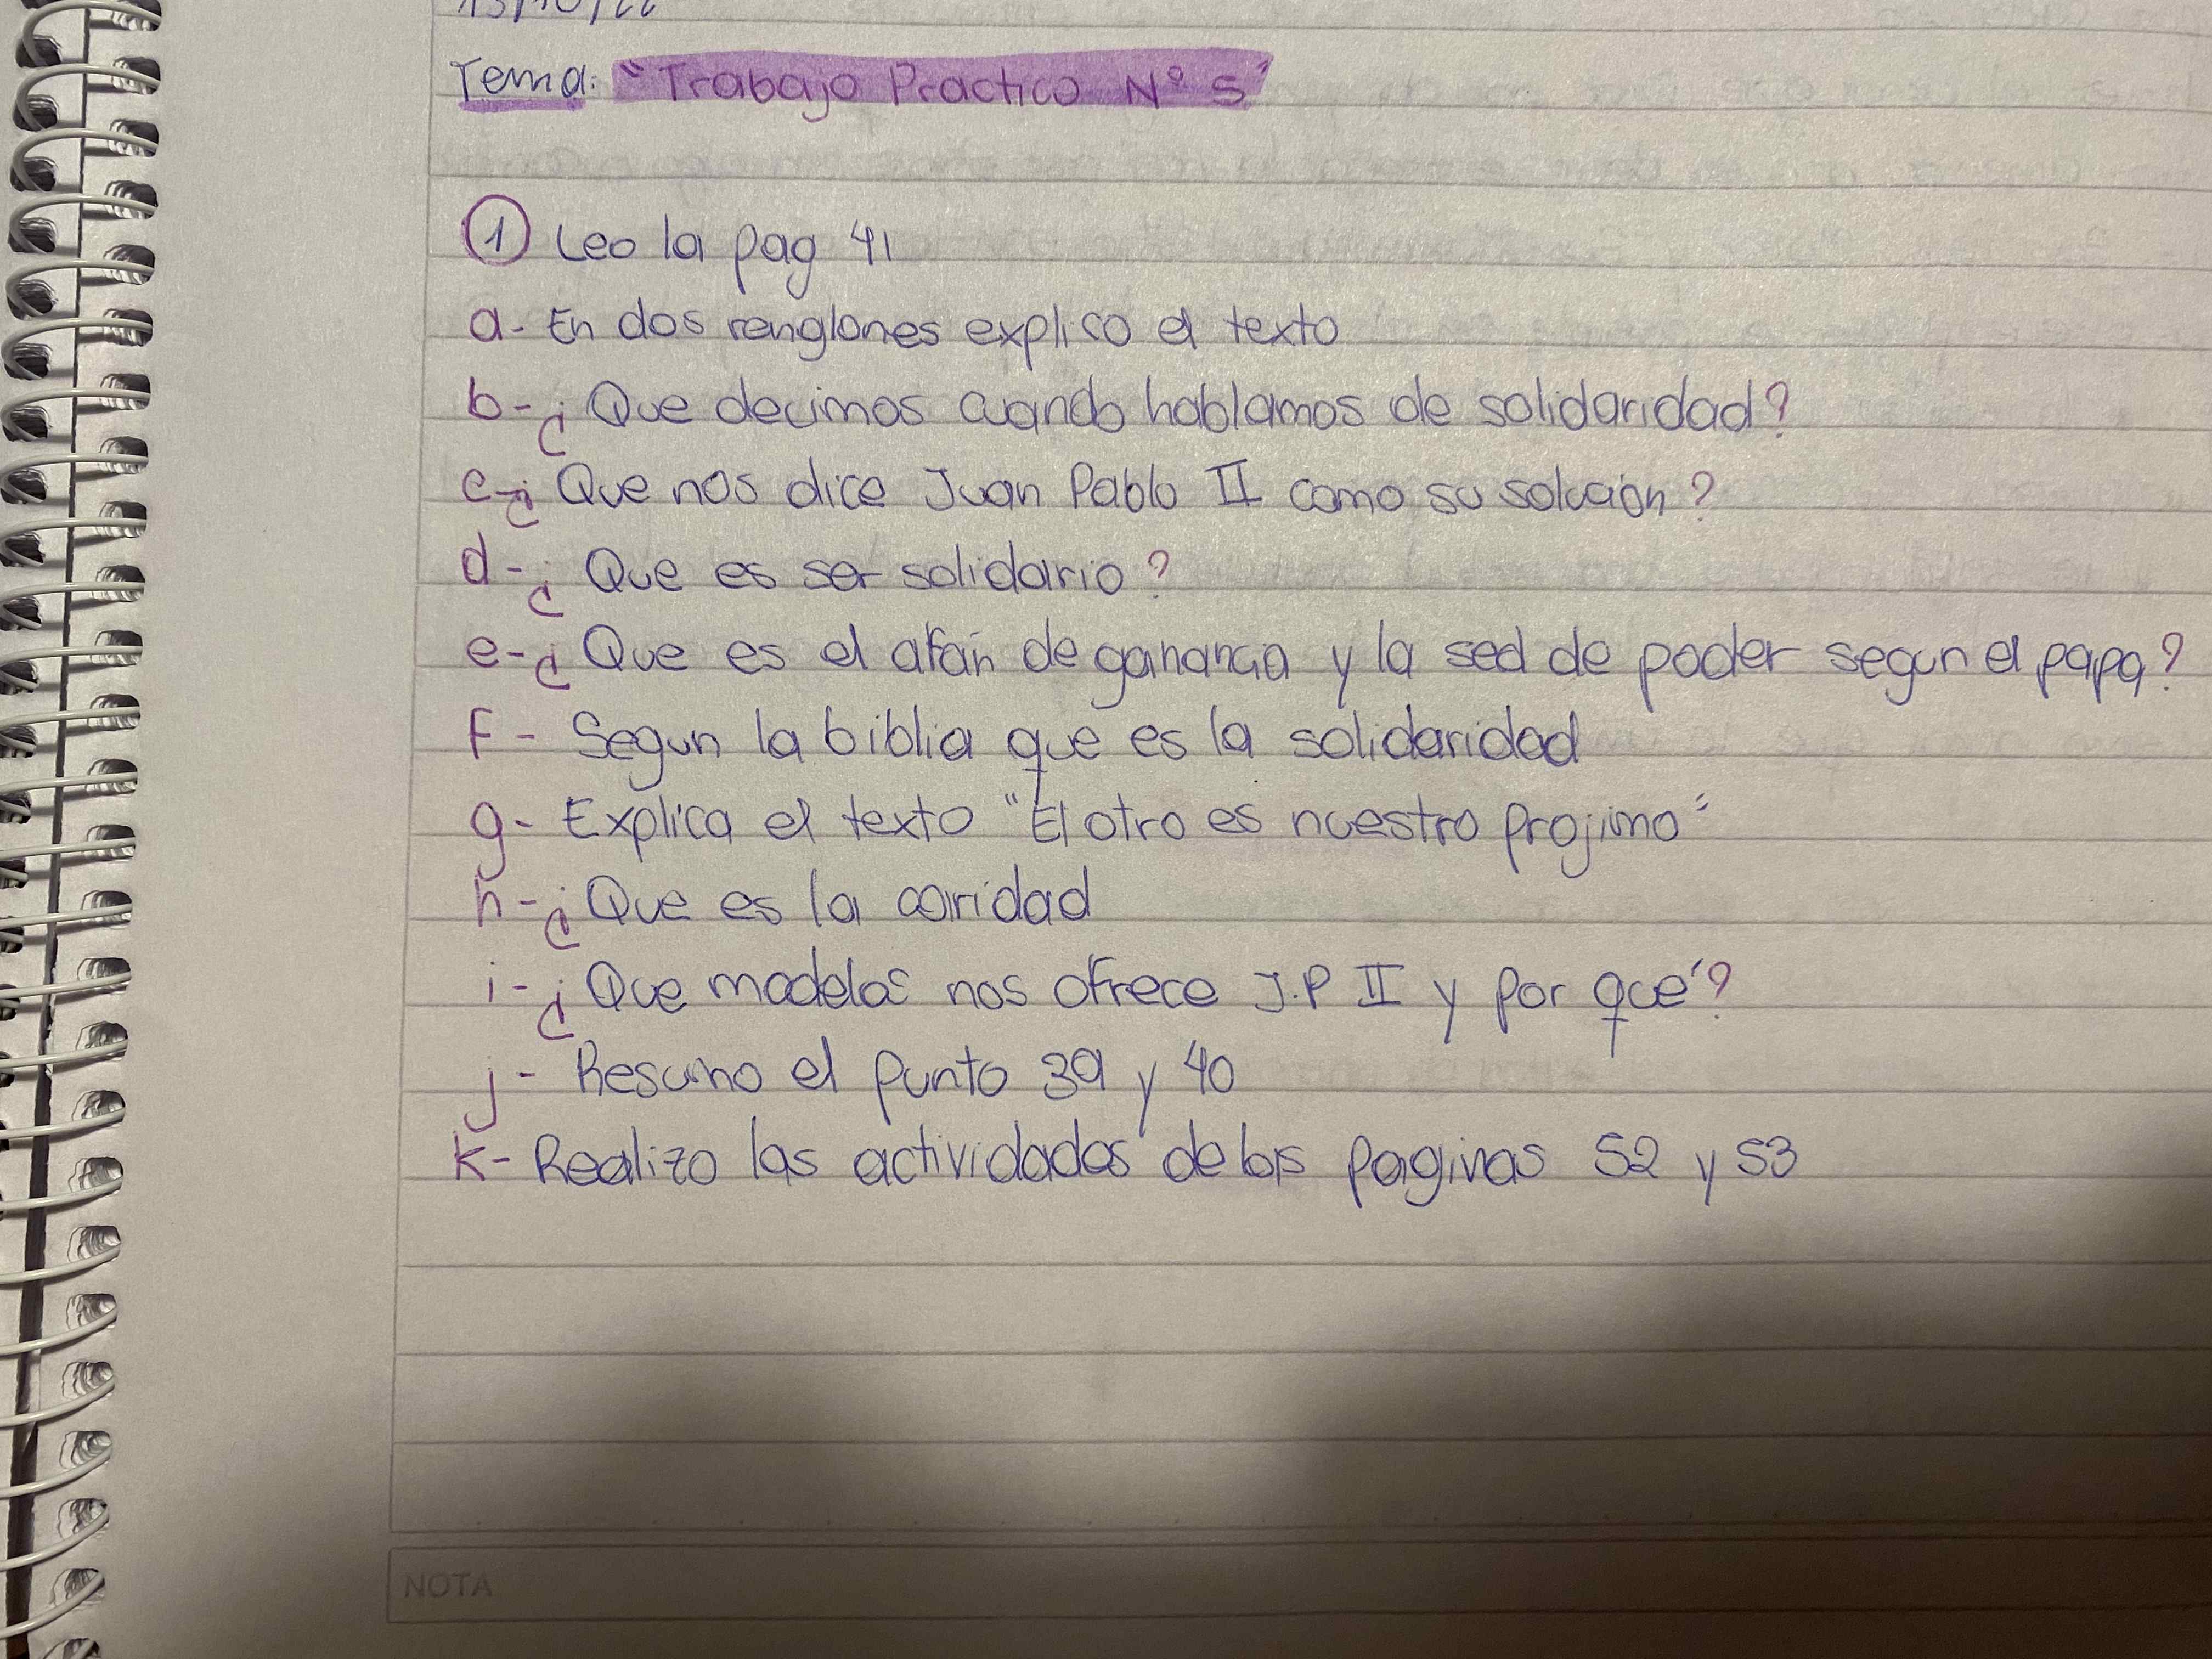 13/10/22
Tema: "Trabajo Practico N° 5"
① Leo la pag 41
a- En dos renglones explico el texto
b- ¿Que decimos cuando hablamos de solidaridad?
c- ¿Que nos dice Juan Pablo II como su solución?
d- ¿Que es ser solidario?
e- ¿Que es el afán de ganancia y la sed de poder segun el papa?
f- Segun la biblia que es la solidaridad
g- Explica el texto "El otro es nuestro projimo"
h- ¿Que es la caridad
i- ¿Que modelos nos ofrece J.P II y por qué?
j- Resumo el punto 39 y 40
k- Realizo las actividades de las paginas 52 y 53
NOTA